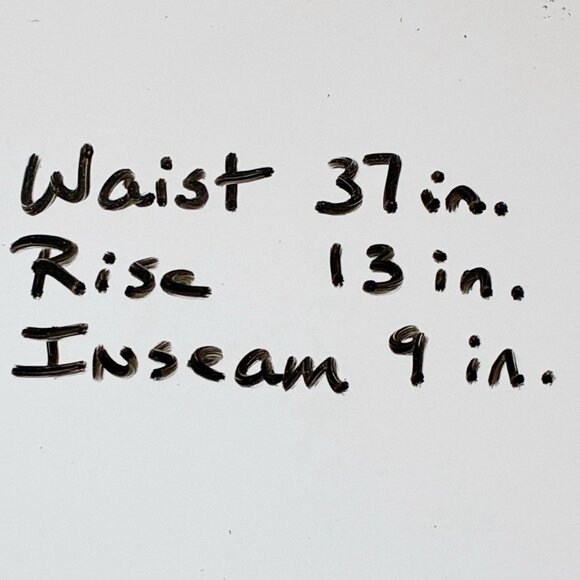 Waist 37 in.
Rise 13 in.
Inseam 9 in.